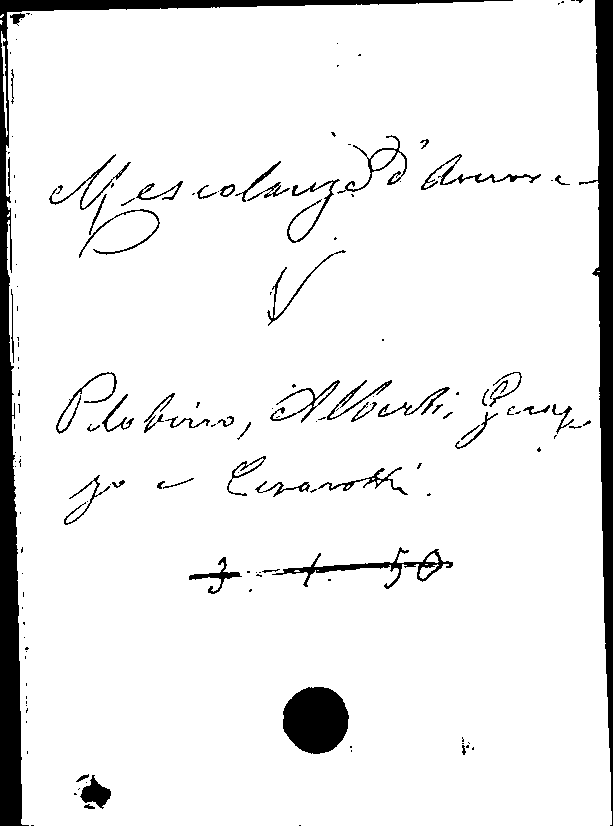 Mescolanze d'Amore
V
Plabino, Alberti, Geroz
zo e Cesarotti.
3. 1. 50